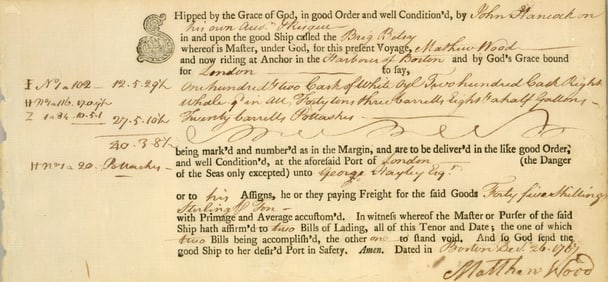 Hipped by the Grace of God, in good Order and well Condition'd, by John Hancock on
his own Acco. & Risque
in and upon the good Ship called the Brig Betsy
whereof is Master, under God, for this present Voyage, Mathew Wood
and now riding at Anchor in the Harbour of Boston and by God's Grace bound
for London to say,
I No 1 a 102 - 12.5.29½ One hundred & two Cask of White Oyl Two hundred Cask Right
Whale q in All Forty tons three barrells Eight & a half Gallons
27.5.10½ Twenty barrells Pottashes
40.3.8½
being mark'd and number'd as in the Margin, and are to be deliver'd in the like good Order,
and well Condition'd, at the aforesaid Port of London (the Danger
H No 1 a 20 Pottashes of the Seas only excepted) unto George Hayley Esqr.
or to his Assigns, he or they paying Freight for the said Goods Forty five Shillings
Sterling P Ton
with Primage and Average accustom'd. In witness whereof the Master or Purser of the said
Ship hath affirm'd to two Bills of Lading, all of this Tenor and Date; the one of which
two Bills being accomplish'd, the other one to stand void. And so God send the
good Ship to her desir'd Port in Safety. Amen. Dated in Boston Dec. 26. 1767
Matthew Wood